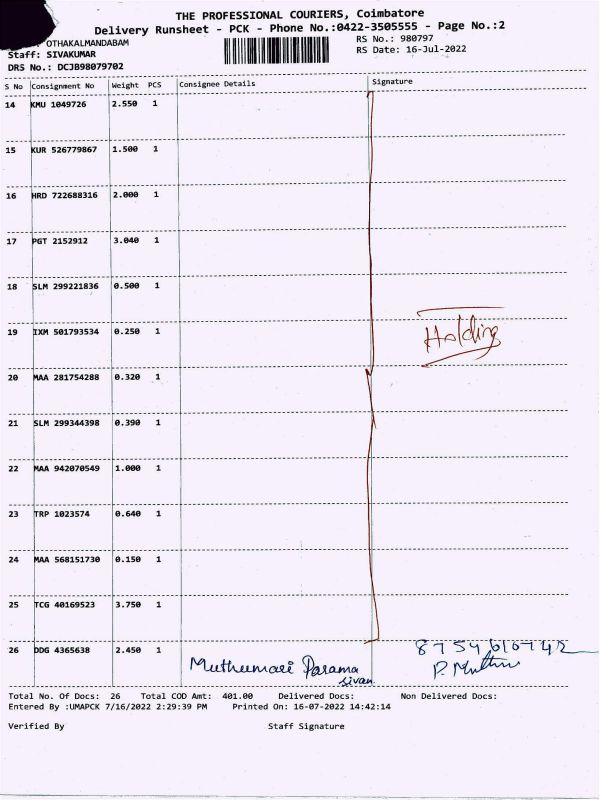 THE PROFESSIONAL COURIERS, Coimbatore
Delivery Runsheet - PCK - Phone No.:0422-3505555 - Page No.:2
OTHAKALMANDABAM
RS No.: 980797
Staff: SIVAKUMAR
RS Date: 16-Jul-2022
DRS No.: DCJB98079702
S No Consignment No Weight PCS Consignee Details Signature
14 KMU 1049726 2.550 1
15 KUR 526779867 1.500 1
16 HRD 722688316 2.000 1
17 PGT 2152912 3.040 1
18 SLM 299221836 0.500 1
19 IXM 501793534 0.250 1
Holding
20 MAA 281754288 0.320 1
21 SLM 299344398 0.390 1
22 MAA 942070549 1.000 1
23 TRP 1023574 0.640 1
24 MAA 568151730 0.150 1
25 TCG 40169523 3.750 1
26 DDG 4365638 2.450 1 Muthumari Parama 8754610742
sivan P. Muthu
Total No. Of Docs: 26 Total COD Amt: 401.00 Delivered Docs: Non Delivered Docs:
Entered By :UMAPCK 7/16/2022 2:29:39 PM Printed On: 16-07-2022 14:42:14
Verified By Staff Signature